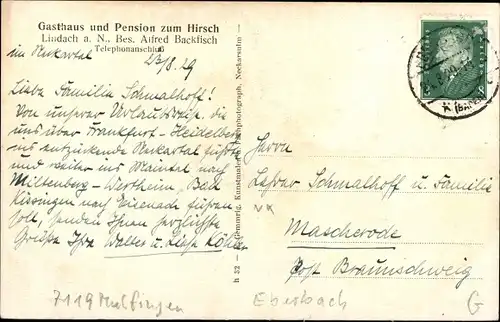 Gasthaus und Pension zum Hirsch
Lindach a. N., Bes. Alfred Backfisch
Telephonanschluß
im Neckartal 23/8.29
Liebe Familie Schmalhoff!
Von unserer Urlaubsreise, die
uns über Frankfurt-Heidelberg
ins entzückende Neckartal führte
und weiter ins Maintal nach
Miltenberg-Wertheim, Bad
Kissingen nach Eisenach führen
soll, senden Ihnen herzlichste
Grüße Ihre Walter u. Liesel Köhler
h 32 Kunstanstalt photograph. Neckarsulm
Herrn
Lehrer Schmalhoff u. Familie
Mascherode
Post Braunschweig
7119 Mulfingen
Eberbach
G